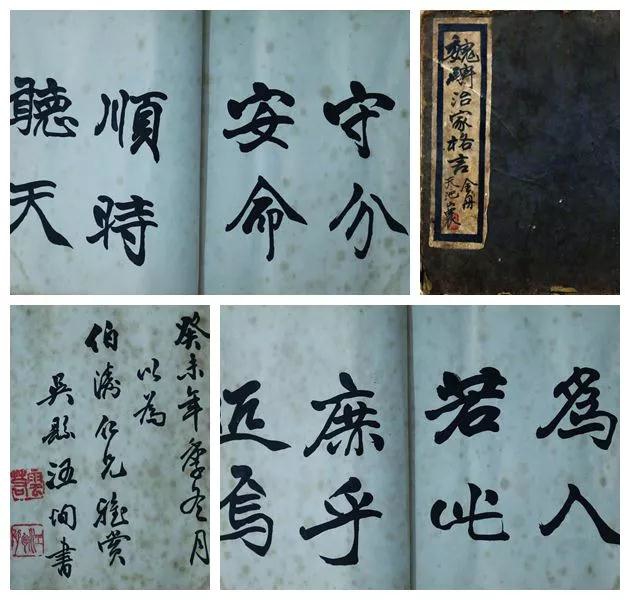 守分
安命
順時
聽天
治家格言
天池
癸未年季冬月
以為
伯濤仁兄雅賞
吳縣汪恂書
為人
若此
庶乎
近焉